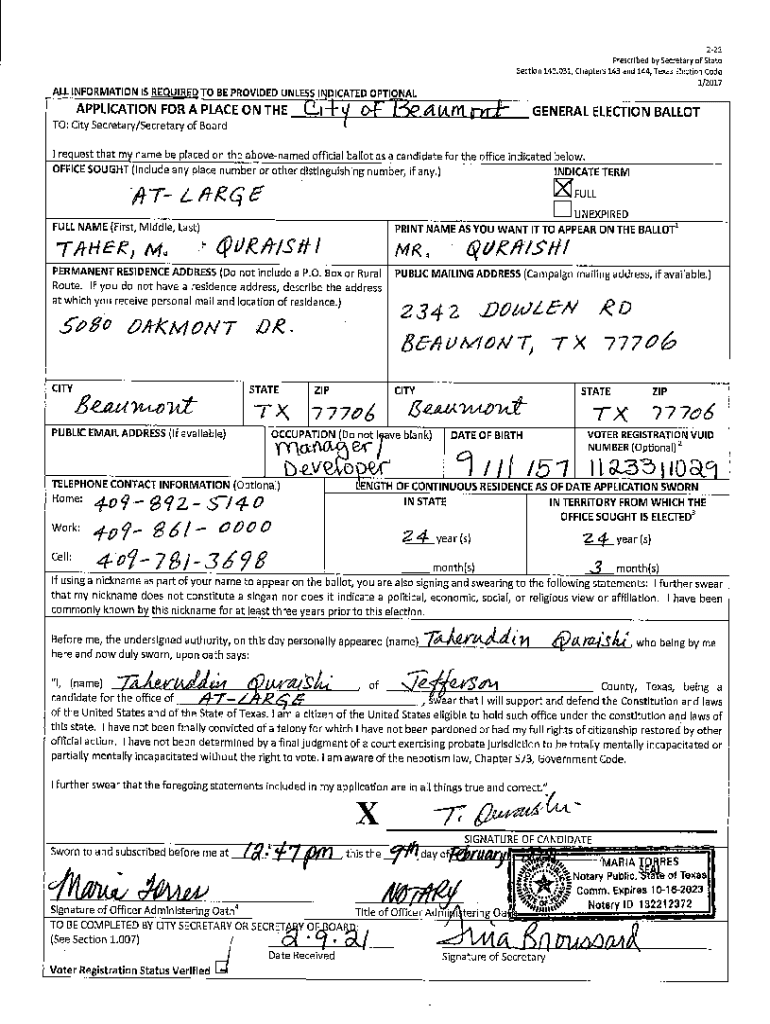 2-21
Prescribed by Secretary of State
Section 141.031, Chapters 143 and 144, Texas Election Code
1/2017
ALL INFORMATION IS REQUIRED TO BE PROVIDED UNLESS INDICATED OPTIONAL
APPLICATION FOR A PLACE ON THE City of Beaumont GENERAL ELECTION BALLOT
TO: City Secretary/Secretary of Board
I request that my name be placed on the above-named official ballot as a candidate for the office indicated below.
OFFICE SOUGHT (Include any place number or other distinguishing number, if any.)
AT-LARGE
INDICATE TERM
X FULL
UNEXPIRED
FULL NAME (First, Middle, Last)
TAHER, M. QURAISHI
PRINT NAME AS YOU WANT IT TO APPEAR ON THE BALLOT1
MR. QURAISHI
PERMANENT RESIDENCE ADDRESS (Do not include a P.O. Box or Rural
Route. If you do not have a residence address, describe the address
at which you receive personal mail and location of residence.)
5080 OAKMONT DR.
PUBLIC MAILING ADDRESS (Campaign mailing address, if available.)
2342 DOWLEN RD
BEAUMONT, TX 77706
CITY STATE ZIP
Beaumont TX 77706
CITY STATE ZIP
Beaumont TX 77706
PUBLIC EMAIL ADDRESS (If available)
OCCUPATION (Do not leave blank)
Manager/
Developer
DATE OF BIRTH
9/11/57
VOTER REGISTRATION VUID
NUMBER (Optional)2
1123311029
TELEPHONE CONTACT INFORMATION (Optional)
Home: 409-892-5140
Work: 409-861-0000
Cell: 409-781-3698
LENGTH OF CONTINUOUS RESIDENCE AS OF DATE APPLICATION SWORN
IN STATE
24 year(s)
month(s)
IN TERRITORY FROM WHICH THE
OFFICE SOUGHT IS ELECTED3
24 year(s)
3 month(s)
If using a nickname as part of your name to appear on the ballot, you are also signing and swearing to the following statements: I further swear
that my nickname does not constitute a slogan nor does it indicate a political, economic, social, or religious view or affiliation. I have been
commonly known by this nickname for at least three years prior to this election.
Before me, the undersigned authority, on this day personally appeared (name) Taheruddin Quraishi, who being by me
here and now duly sworn, upon oath says:
"I, (name) Taheruddin Quraishi, of Jefferson County, Texas, being a
candidate for the office of AT-LARGE, swear that I will support and defend the Constitution and laws
of the United States and of the State of Texas. I am a citizen of the United States eligible to hold such office under the constitution and laws of
this state. I have not been finally convicted of a felony for which I have not been pardoned or had my full rights of citizenship restored by other
official action. I have not been determined by a final judgment of a court exercising probate jurisdiction to be totally mentally incapacitated or
partially mentally incapacitated without the right to vote. I am aware of the nepotism law, Chapter 573, Government Code.
I further swear that the foregoing statements included in my application are in all things true and correct."
X T. Quraishi
SIGNATURE OF CANDIDATE
Sworn to and subscribed before me at 12:47pm, this the 9th day of February
MARIA TORRES
Notary Public, State of Texas
Comm. Expires 10-16-2023
Notary ID 132212372
SEAL
Maria Torres
NOTARY
Signature of Officer Administering Oath4
Title of Officer Administering Oath
TO BE COMPLETED BY CITY SECRETARY OR SECRETARY OF BOARD:
(See Section 1.007)
2.9.21
Date Received
Tina Broussard
Signature of Secretary
Voter Registration Status Verified